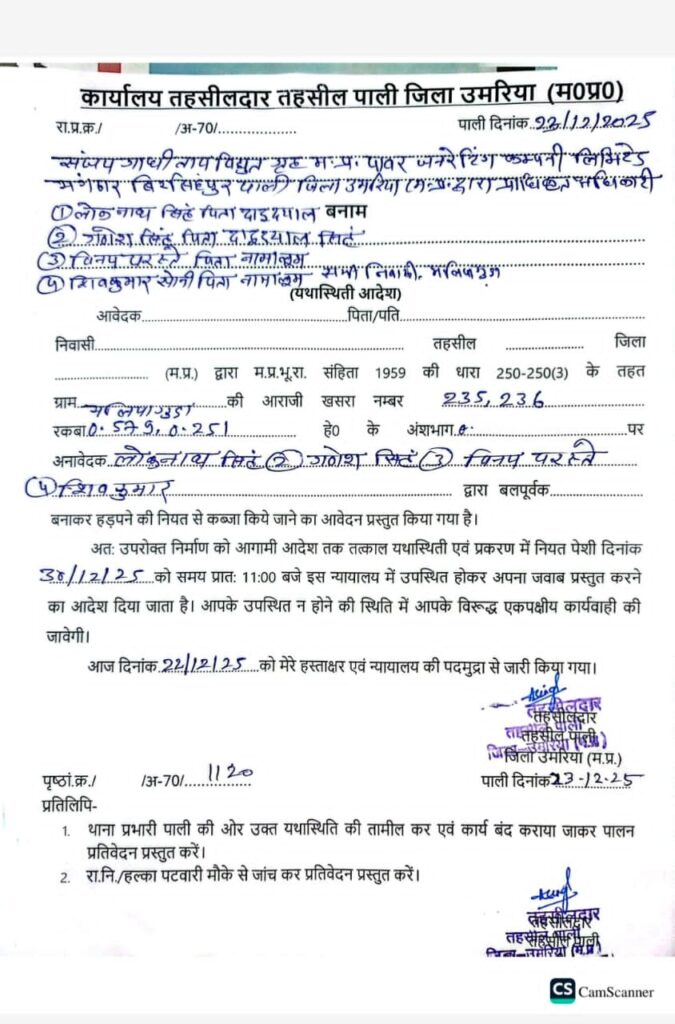 कार्यालय तहसीलदार तहसील पाली जिला उमरिया (म0प्र0)
रा.प्र.क्र./ /अ-70/................... पाली दिनांक.23/12/2025
संजय गांधी ताप विद्युत गृह म.प्र. पावर जनरेटिंग कम्पनी लिमिटेड
मंगठार बिरसिंहपुर पाली जिला उमरिया (म.प्र.) द्वारा प्राधिकृत अधिकारी
① लोकनाथ सिंह पिता दाडदयाल बनाम
② गणेश सिंह पिता दाडदयाल सिंह
③ विनय परस्ते पिता नामालूम
④ शिवकुमार सोनी पिता नामालूम सभी निवासी.
(यथास्थिती आदेश)
आवेदक..............................................पिता/पति..............................................
निवासी.............................................................. तहसील .................. जिला
...................... (म.प्र.) द्वारा म.प्र.भू.रा. संहिता 1959 की धारा 250-250(3) के तहत
ग्राम..................की आराजी खसरा नम्बर 235, 236
रकबा0.579, 0.251 हे0 के अंशभाग.................पर
अनावेदक लोकनाथ सिंह ② गणेश सिंह ③ विनय परस्ते
④ शिवकुमार द्वारा बलपूर्वक..................
बनाकर हड़पने की नियत से कब्जा किये जाने का आवेदन प्रस्तुत किया गया है।
अत: उपरोक्त निर्माण को आगामी आदेश तक तत्काल यथास्थिती एवं प्रकरण में नियत पेशी दिनांक
30/12/25 को समय प्रात: 11:00 बजे इस न्यायालय में उपस्थित होकर अपना जवाब प्रस्तुत करने
का आदेश दिया जाता है। आपके उपस्थित न होने की स्थिति में आपके विरूद्ध एकपक्षीय कार्यवाही की
जावेगी।
आज दिनांक 22/12/25 को मेरे हस्ताक्षर एवं न्यायालय की पदमुद्रा से जारी किया गया।
तहसीलदार
तहसीलदार
तहसील पाली
तहसील पाली
जिला-उमरिया (म.प्र.)
जिला उमरिया (म.प्र.)
पृष्ठां.क्र./ /अ-70/...1120 पाली दिनांक 23-12-25
प्रतिलिपि-
1. थाना प्रभारी पाली की ओर उक्त यथास्थिति की तामील कर एवं कार्य बंद कराया जाकर पालन
प्रतिवेदन प्रस्तुत करें।
2. रा.नि./हल्का पटवारी मौके से जांच कर प्रतिवेदन प्रस्तुत करें।
तहसीलदार
तहसीलदार
तहसील पाली
तहसील पाली
जिला-उमरिया (म.प्र.)
CS CamScanner